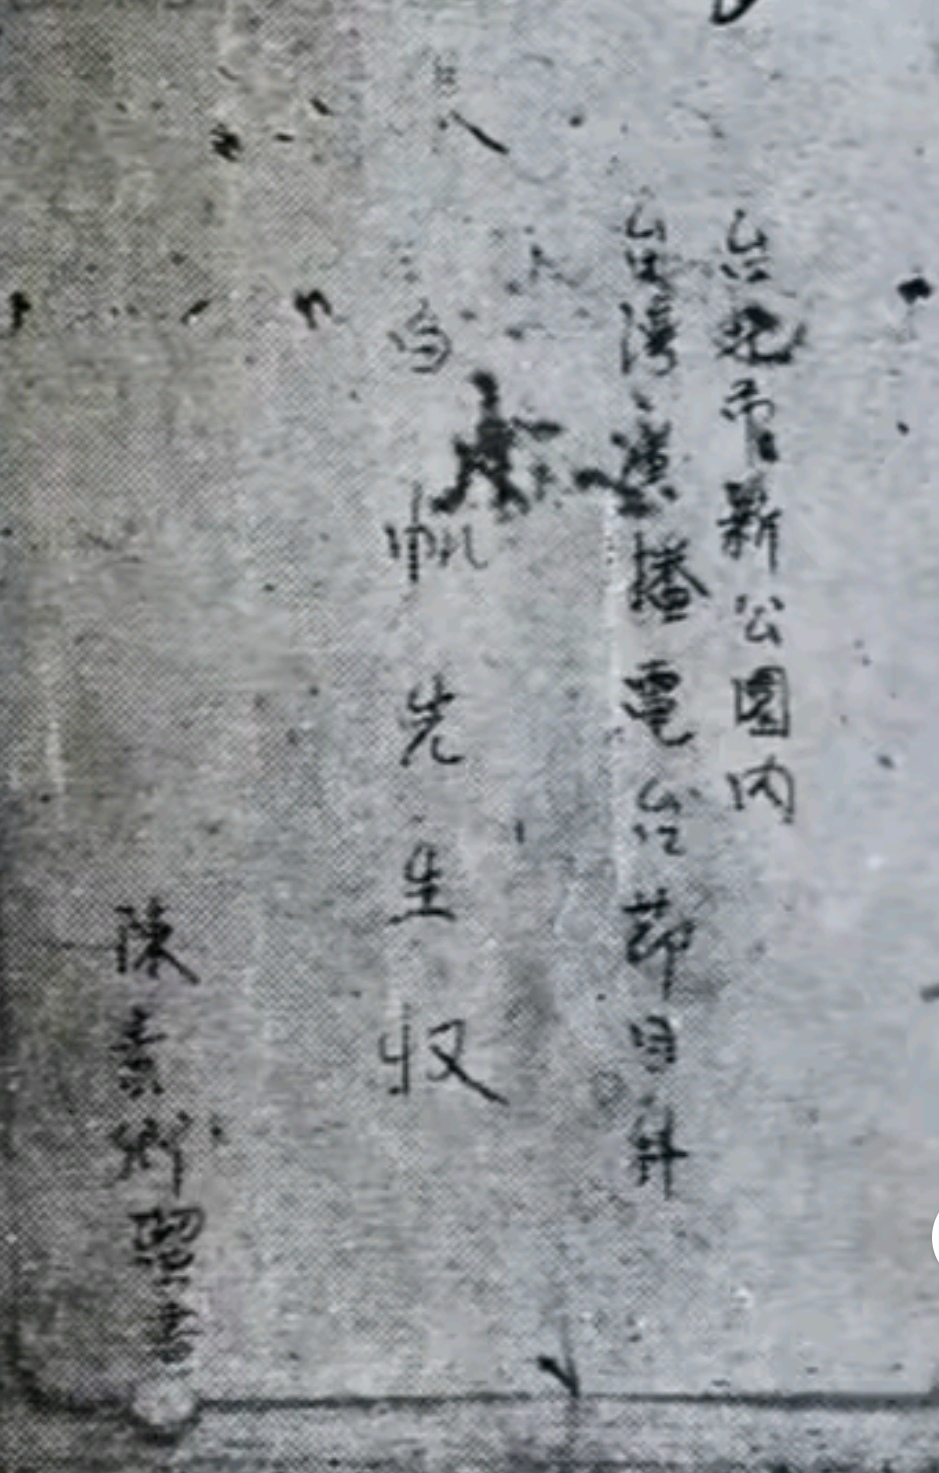 台北市新公園內
台灣廣播電台節目科
白帆先生收
陳素卿留書